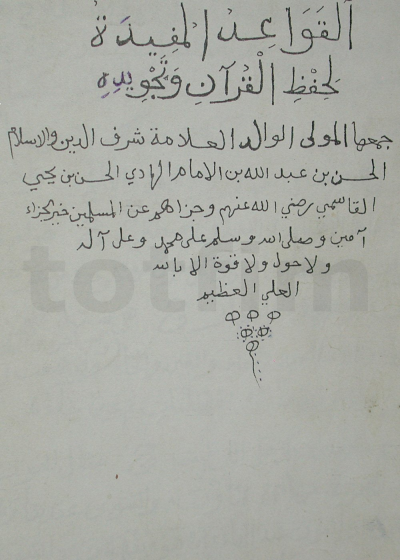 القَوَاعِدُ المُفِيدَةُ
لِحِفْظِ الْقُرآنِ وَتَجْوِيدِهِ
جمعها المولى الوالد العلامة شرف الدين والاسلام
الحسن بن عبد الله بن الامام الهادي الحسن بن يحيى
القاسمي رضي الله عنهم وجزاهم عن المسلمين خير الجزاء
آمين وصلى الله وسلم على محمد وعلى آله
ولا حول ولا قوة الا بالله
العلي العظيم